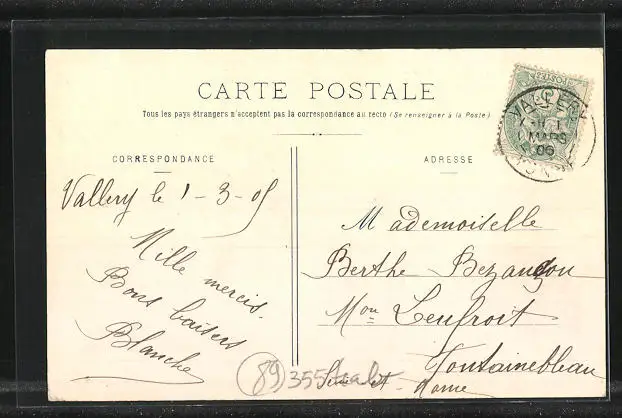 CARTE POSTALE
Tous les pays étrangers n'acceptent pas la correspondance au recto (Se renseigner à la Poste)
CORRESPONDANCE
Vallery le 1-3-05
Mille mercis.
Bons baisers
Blanche
ADRESSE
Mademoiselle
Berthe Bezançon
Mon Leufroit
Fontainebleau
Seine-et-Marne
VALLERY
1 MARS
YONNE
89 355